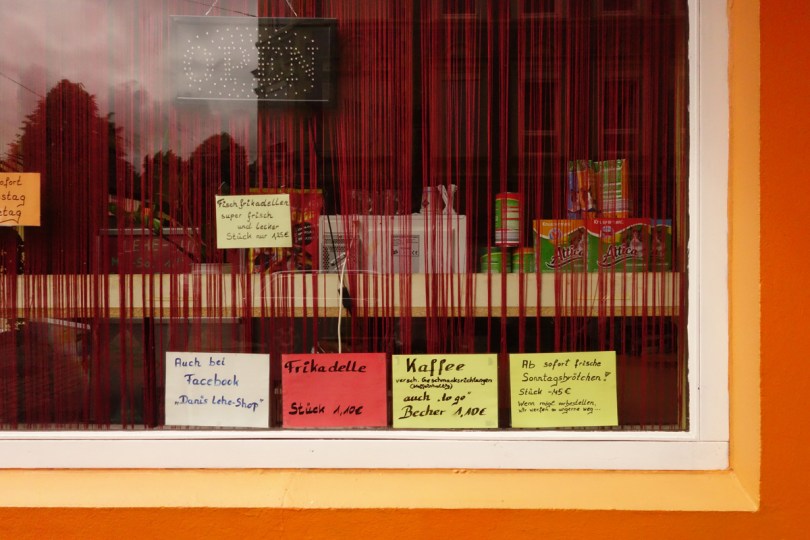 OPEN
Fischfrikadellen
super frisch
und lecker
Stück nur 1,25€
Attica
Attica
Auch bei
Facebook
„Danis Lehe-Shop"
Frikadelle
Stück 1,10€
Kaffee
versch. Geschmacksrichtungen
auch „to go"
Becher 1,10€
Ab sofort frische
Sonntagsbrötchen!
Stück -,45 €
Wenn mögl. vorbestellen,
wir werfen so ungerne weg...